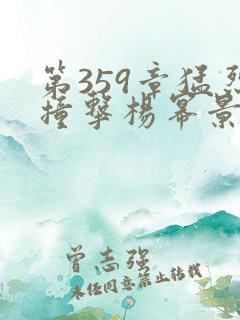 第359章猛烈
撞擊楊冪景
曾志强
未任同意禁止转载